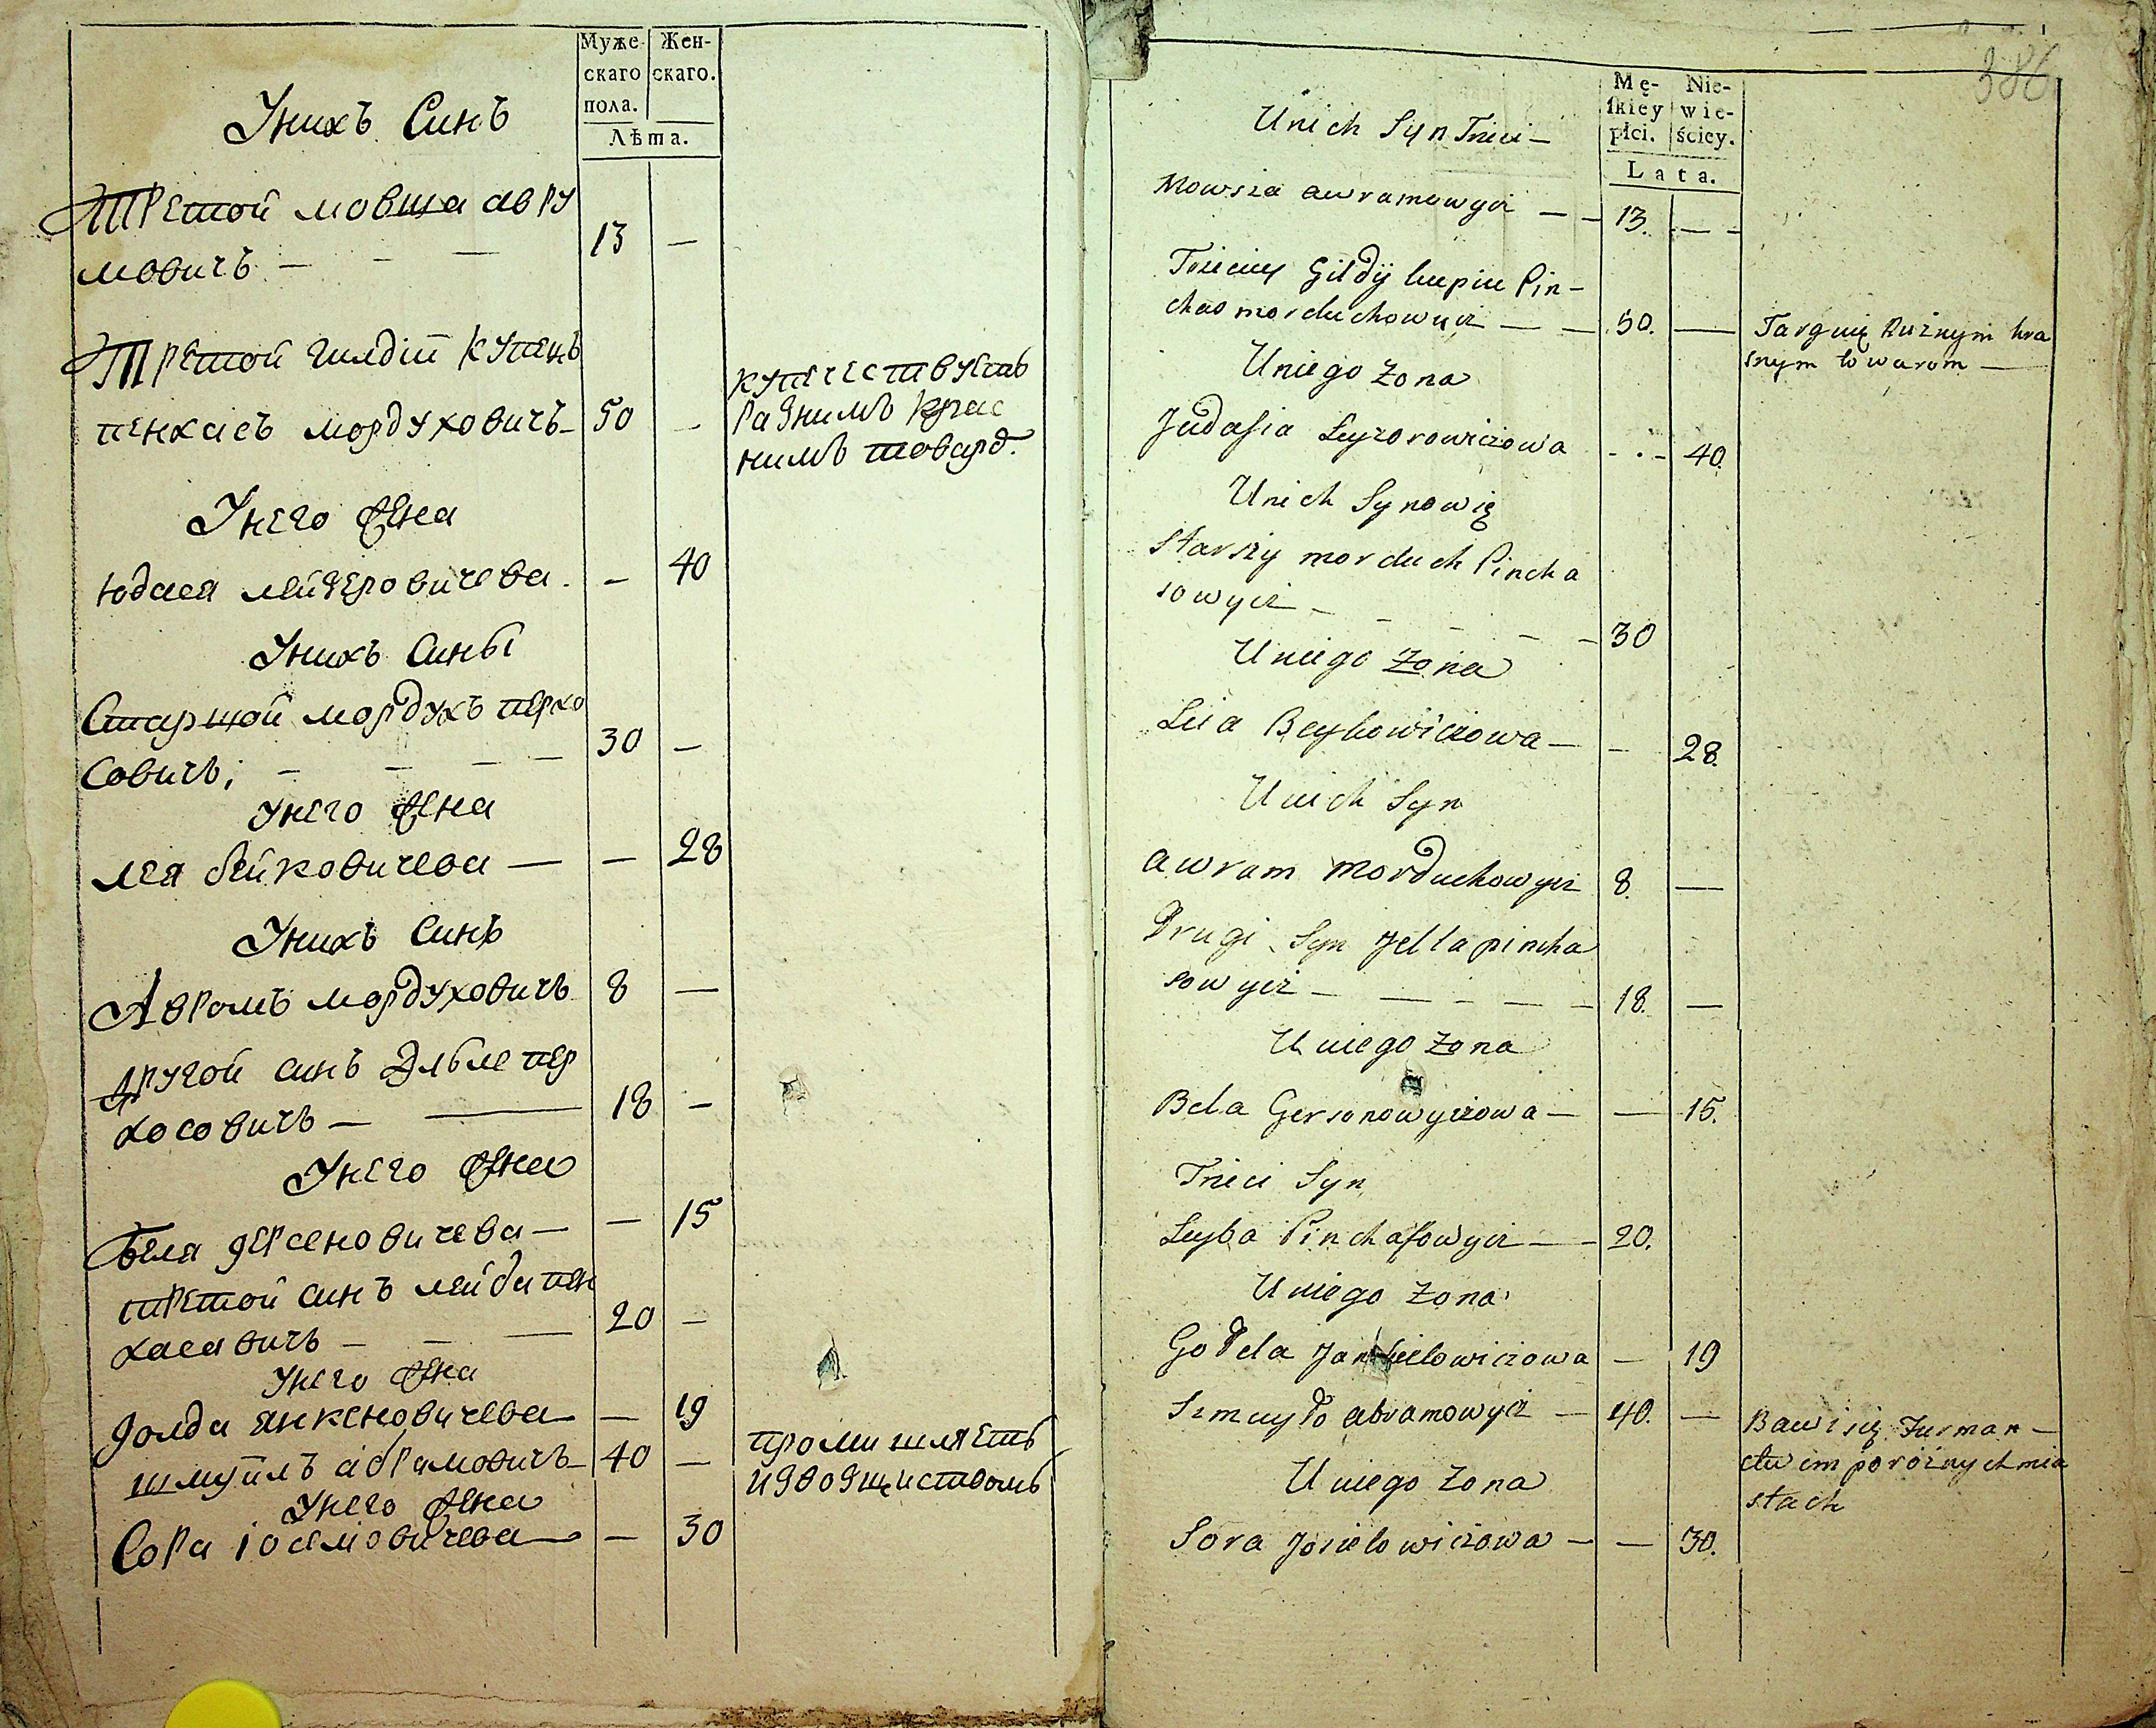 Муже-
скаго
пола.
Жен-
скаго.
Лѣта.
Унихъ Синъ
Третой мовша авра
мовичъ — - —
13 —
Третой гилдіи купецъ
пенхасъ мордуховичъ- 50 -
купечествуетъ
разнимъ крас
нимъ товард.
Унего жена
юдася лейзеровичева. - 40
Унихъ Сины
Старшой мордухъ пенхо
совичъ; - - - - 30 —
Унего жена
лея бейковичева — — 28
Унихъ Синъ
Авромъ мордуховичъ 8 —
другой синъ Эльле пен
хосовичъ — — 18 -
Унего жена
Беля герсеновичева — — 15
третой синъ лейба пен
хасавичъ — - — 20 -
Унего жена
голда янкеновичева — — 19
шмуилъ абрамовичъ- 40 —
промишляетъ
извозщиствомъ
Унего жена
Сора іоселіовичева — — 30
386
Mę-
ſkiey
płci.
Nie-
wie-
ściey.
Lata.
Unich Syn Trzci —
Mowsza awramowycz — — 13. — -
Trzeciey Gildÿ kupiec Pin-
chas morduchowycz — — 50. —
Targuię Rużnym kra
snym towarom —
Uniego Zona
Judasia Leyzorowiczowa - . - 40.
Unich Synowię
Starszy morduch Pincha
sowycz — - - - - 30
Uniego Zona
Leia Beykowiczowa — — 28.
Unich Syn
awram Morduchowycz 8. —
Drugi Syn Jella pincha
sowycz — — - — - 18. —
Uniego Zona
Bela Gersonowyczowa — — 15.
Trzeci Syn
Leyba Pinchaſowycz — - 20.
Uniego Zona
Golda Jankielowiczowa — 19
Szmuyło abramowycz — 40. —
Bawi się Furman-
stwem poróżnych mia
stach
Uniego Zona
Sora Josielowiczowa — — 30.